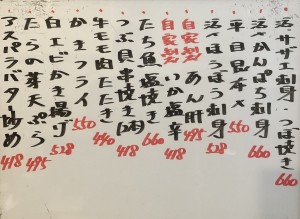 活サザエ刺身、つぼ焼き 660
活〆かんぱち刺身 660
平目昆布〆 550
活〆ほうぼう刺身 528
自家製 あん肝 495
自家製 いか塩辛 418
たち魚塩焼き 660
つぶ貝串焼き(2本) 418
牛モモ肉たたき 440
カキフライ 550
白エビかき揚げ 528
たらの芽天ぷら 495
アスパラバター炒め 418